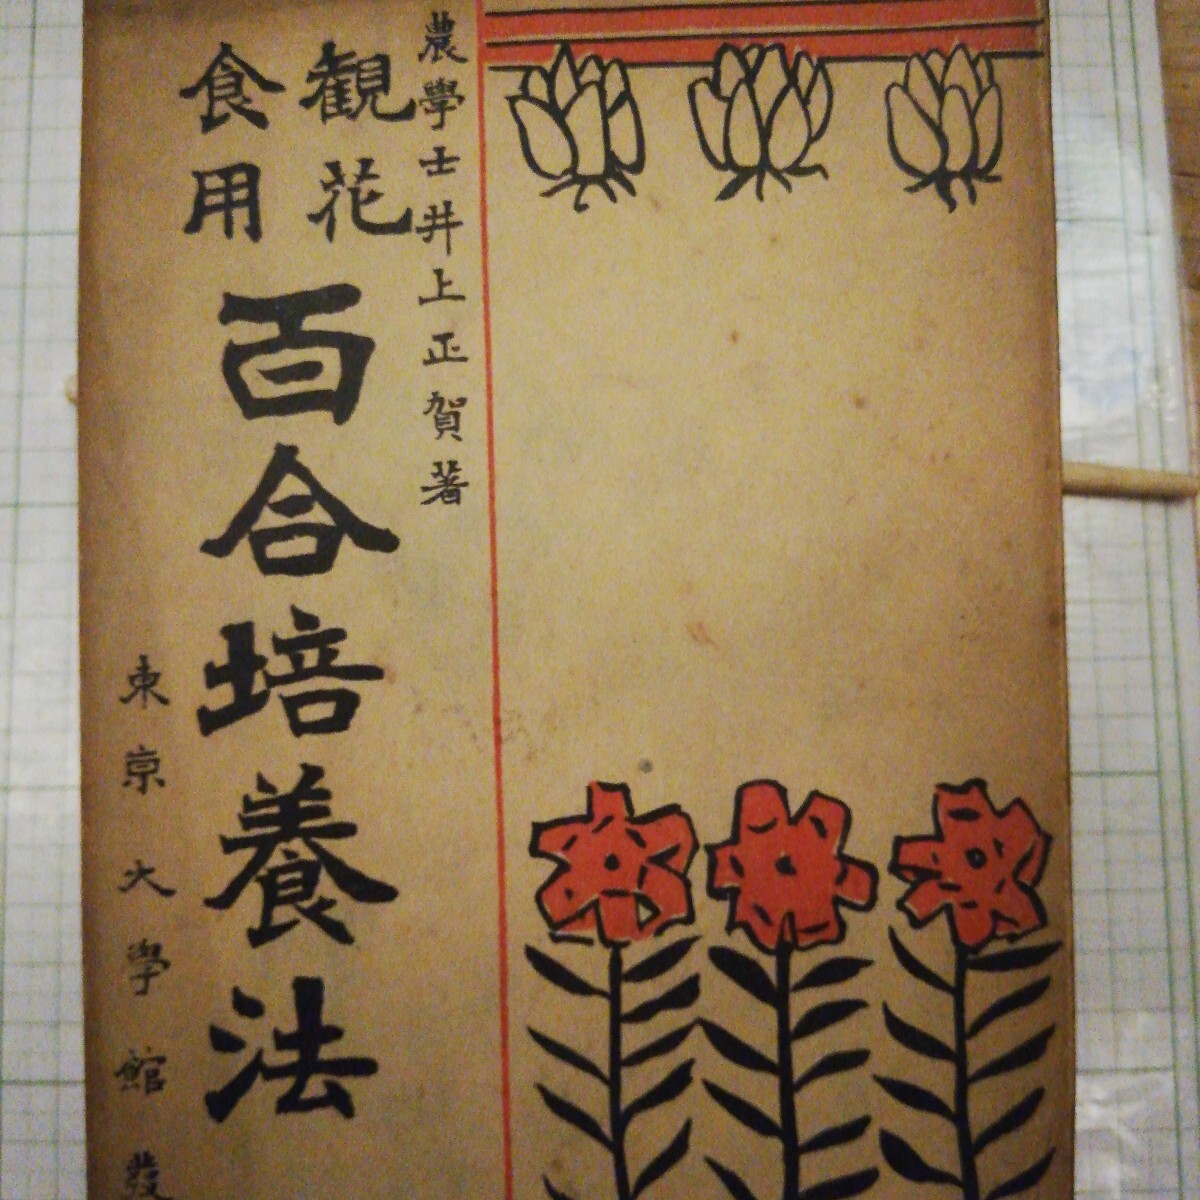 農學士井上正賀著
観花
食用
百合培養法
東京大學館發